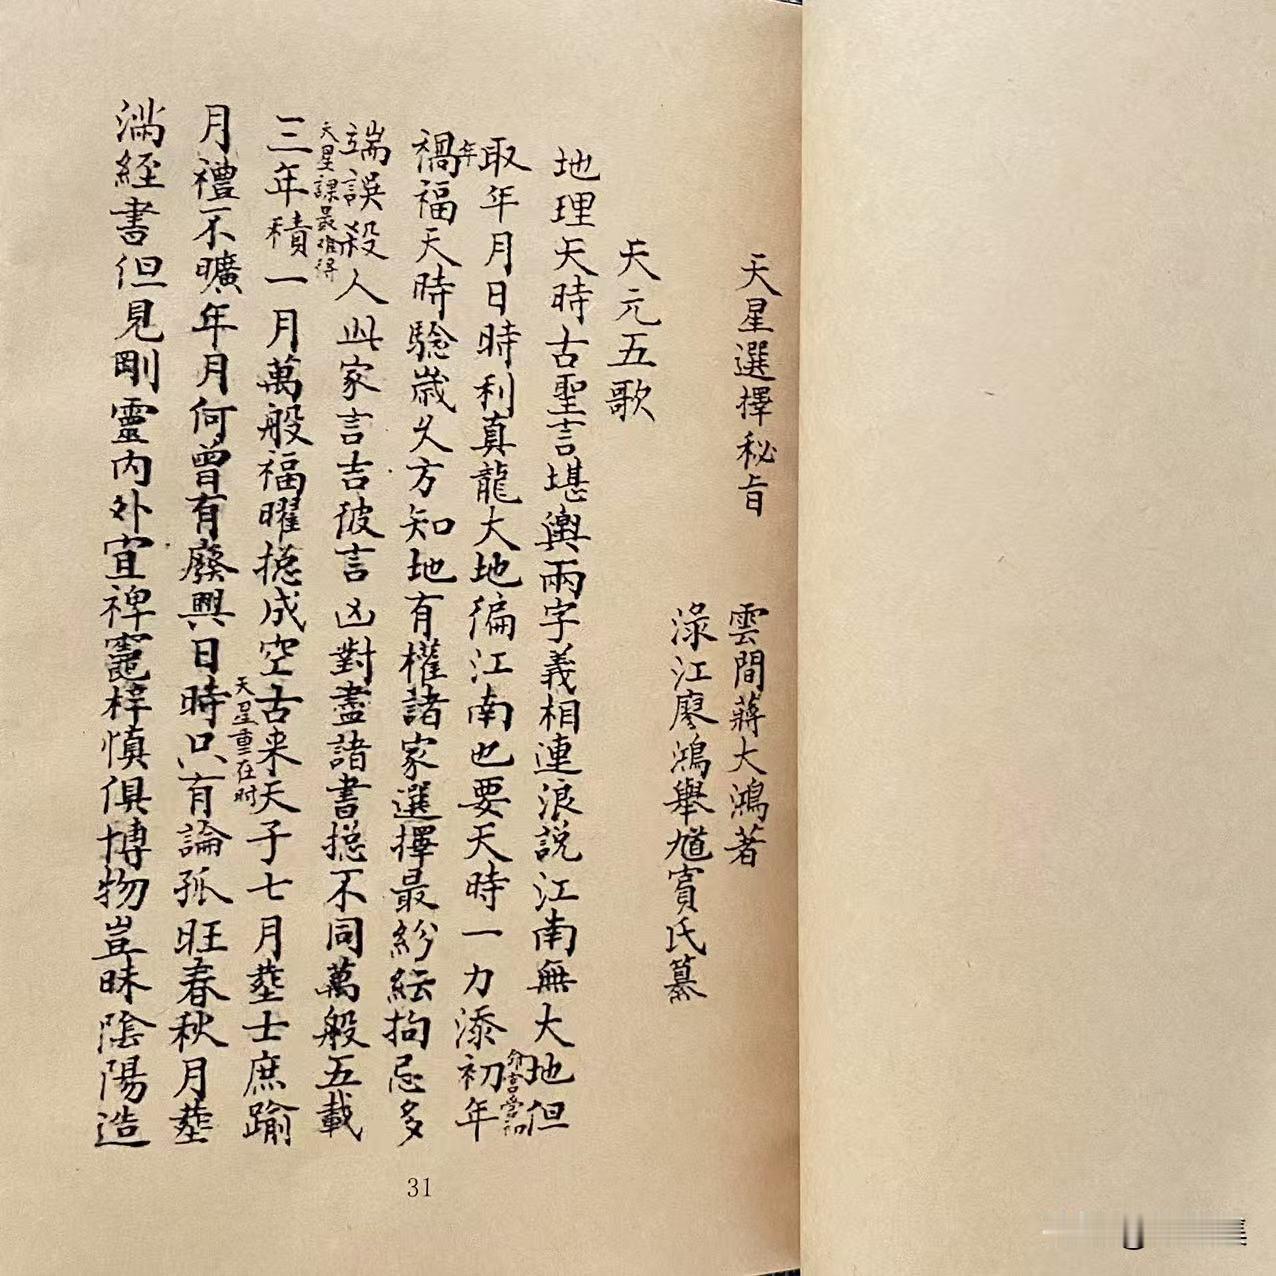 天星選擇秘旨
雲間蔣大鴻著
淥江廖鴻舉馗賓氏纂
天元五歌
地理天時古聖言堪輿兩字義相連浪說江南無大地但
取年月日時利真龍大地徧江南也要天時一力添初年
年
禍福天時驗歲久方知地有權諸家選擇最紛紜拘忌多
端誤殺人此家言吉彼言凶對盡諸書摠不同萬般五載
天星課最难得
三年積一月萬般福曜摠成空古来天子七月塟士庶踰
天星重在时
月禮不曠年月何曾有廢興日時只有論孤旺春秋月塟
滿經書但見剛靈內外宜裨竈梓慎俱博物豈昧陰陽造
31